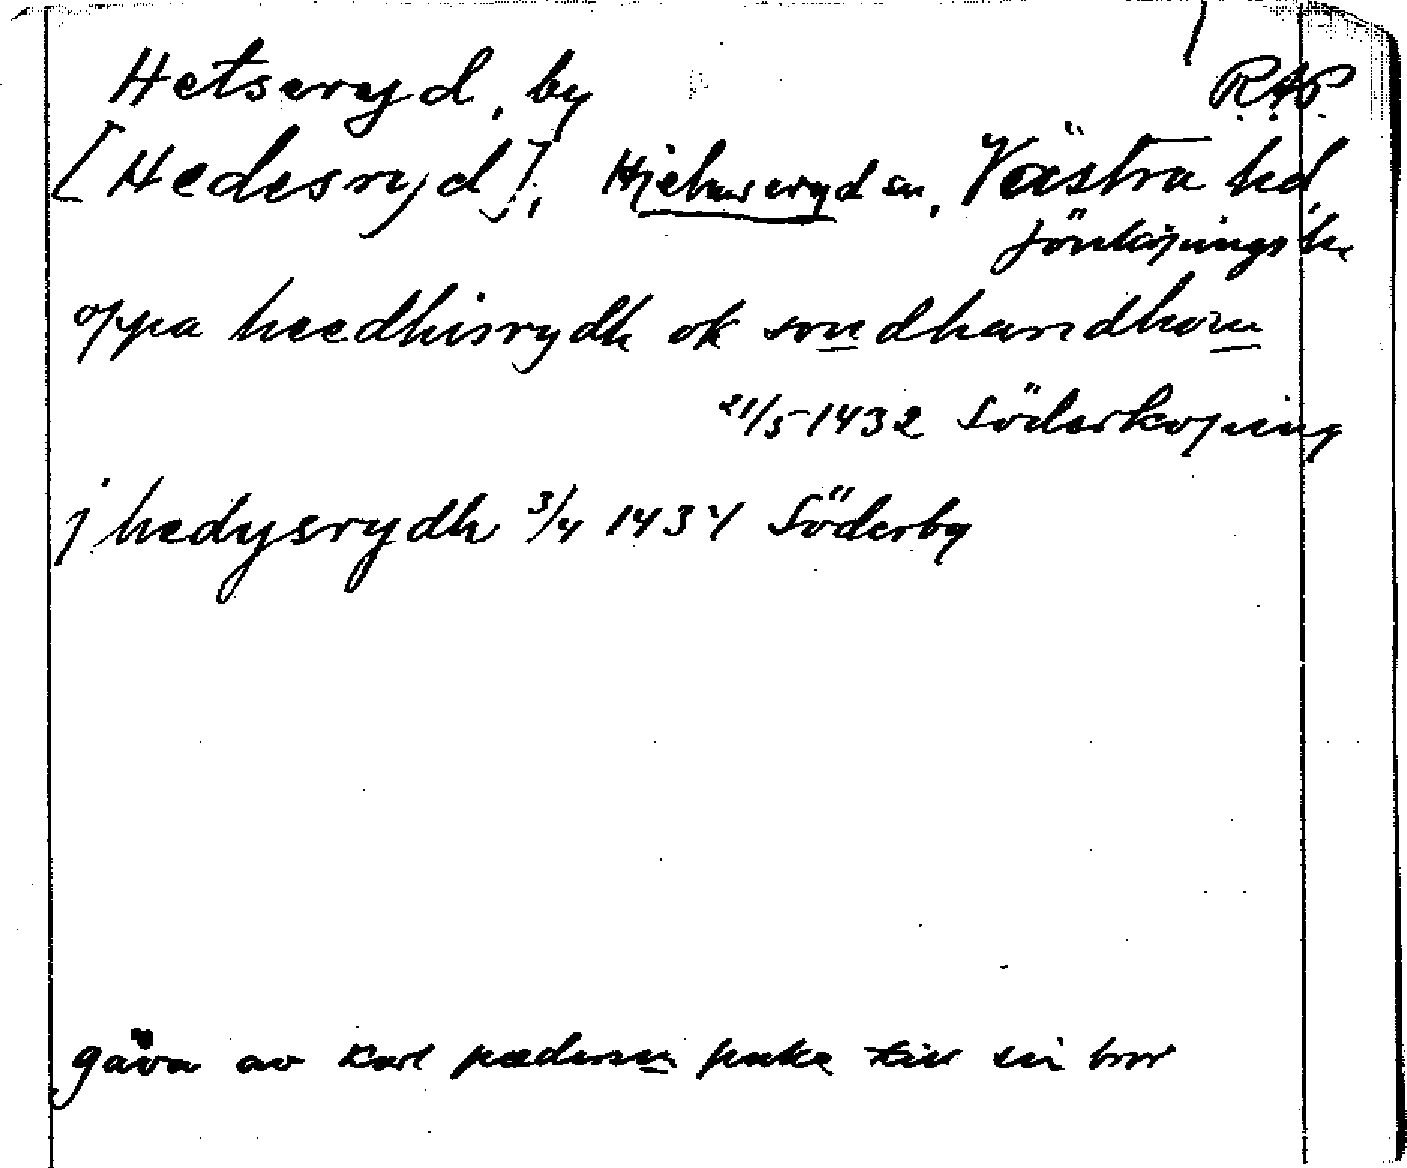 Hetseryd, by R.A.P.
[Hedesryd], Hjelmseryd sn, Västra hd,
Jönköpings l.
oppa heedhisrydh ok sondhandhom
21/5 1432 Söderköping
j hedysrydh 3/4 1434 Söderby
gåva av Karl pædersen puke till sin bror